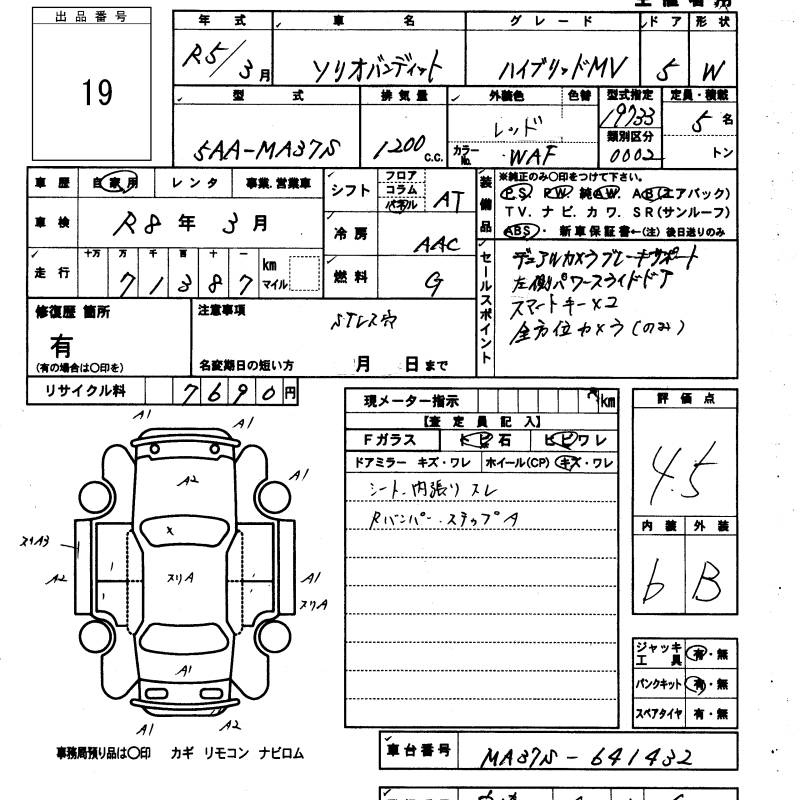 出品番号
19
年式 車名 グレード ドア 形状
R5/3月 ソリオバンディット ハイブリッドMV 5 W
型式 排気量 外装色 色替 型式指定 定員・積載
5AA-MA37S 1200 c.c. レッド 19733 5名
カラーNo. WAF 類別区分 0002 トン
車歴 自家用 レンタ 事業.営業車
車検 R8年3月
走行 十万 万 千 百 十 一
71387 km マイル
シフト フロア コラム パネル AT
冷房 AAC
燃料 G
装備品
※純正のみ〇印をつけて下さい。
P.S. P.W. 純A.W. A.B(エアバッグ)
T.V. ナビ. カワ. S.R(サンルーフ)
ABS・新車保証書←(注)後日送りのみ
セールスポイント
デュアルカメラブレーキサポート
左側パワースライドドア
スマートキー×2
全方位カメラ(のみ)
修復歴 箇所
有
(有の場合は〇印を)
注意事項
STレス穴
名変期日の短い方 月 日まで
リサイクル料 7690円
現メーター指示 km
【査定員記入】
Fガラス トビ石 ヒビワレ
ドアミラー キズ・ワレ ホイール(CP) キズ・ワレ
シート.内張り スレ
Rバンパー.ステップA
評価点
4.5
内装 外装
b B
ジャッキ 工具 有・無
パンクキット 有・無
スペアタイヤ 有・無
A1
A1
A2
A1
×
スリA3
A2
スリA
A1
スリA
A1
A1
A2
事務局預り品は〇印 カギ リモコン ナビロム
車台番号 MA37S-641432